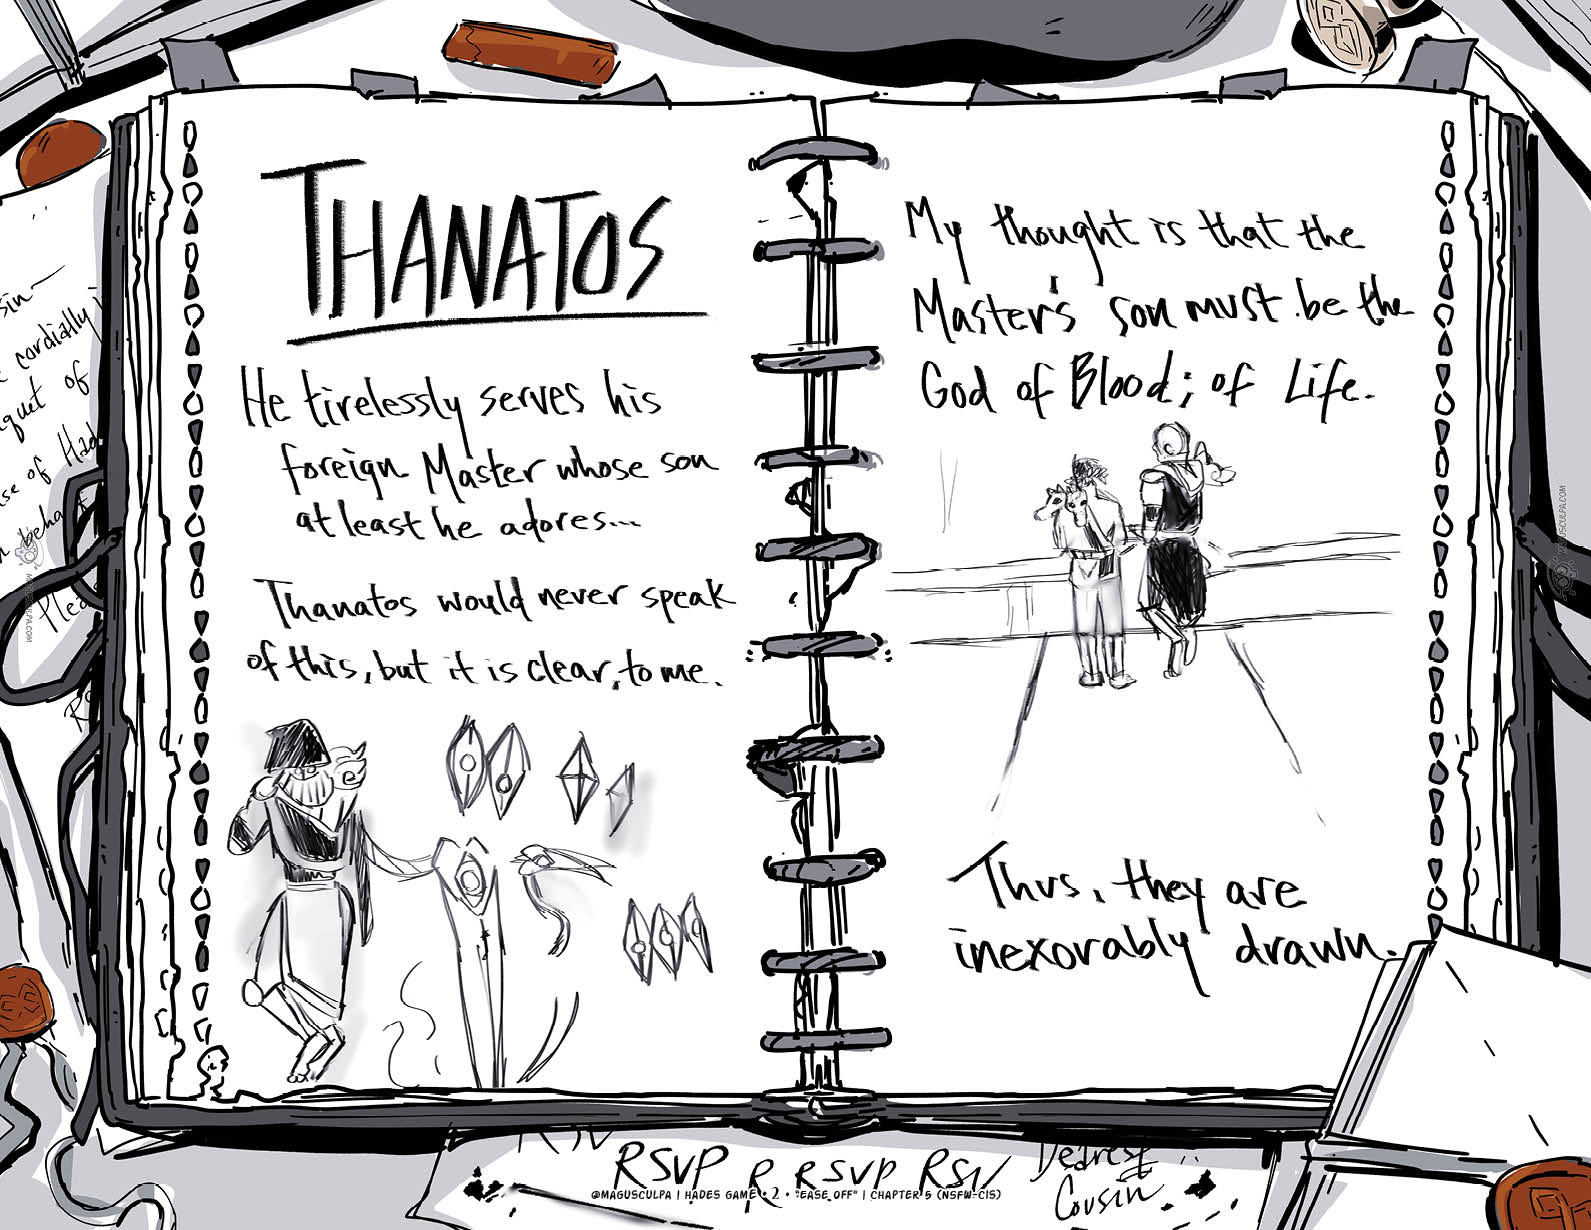 THANATOS
He tirelessly serves his
foreign Master whose son
at least he adores...
Thanatos would never speak
of this, but it is clear, to me.
My thought is that the
Master's son must be the
God of Blood; of Life.
Thus, they are
inexorably drawn.
cordially
of
of Had
behalf
RSVP R RSVP RSV
Dearest
Cousin
@MAGUSCULPA | HADES GAME • 2 • "EASE OFF" | CHAPTER 5 (NSFW-CIS)
MAGUSCULPA.COM
MAGUSCULPA.COM